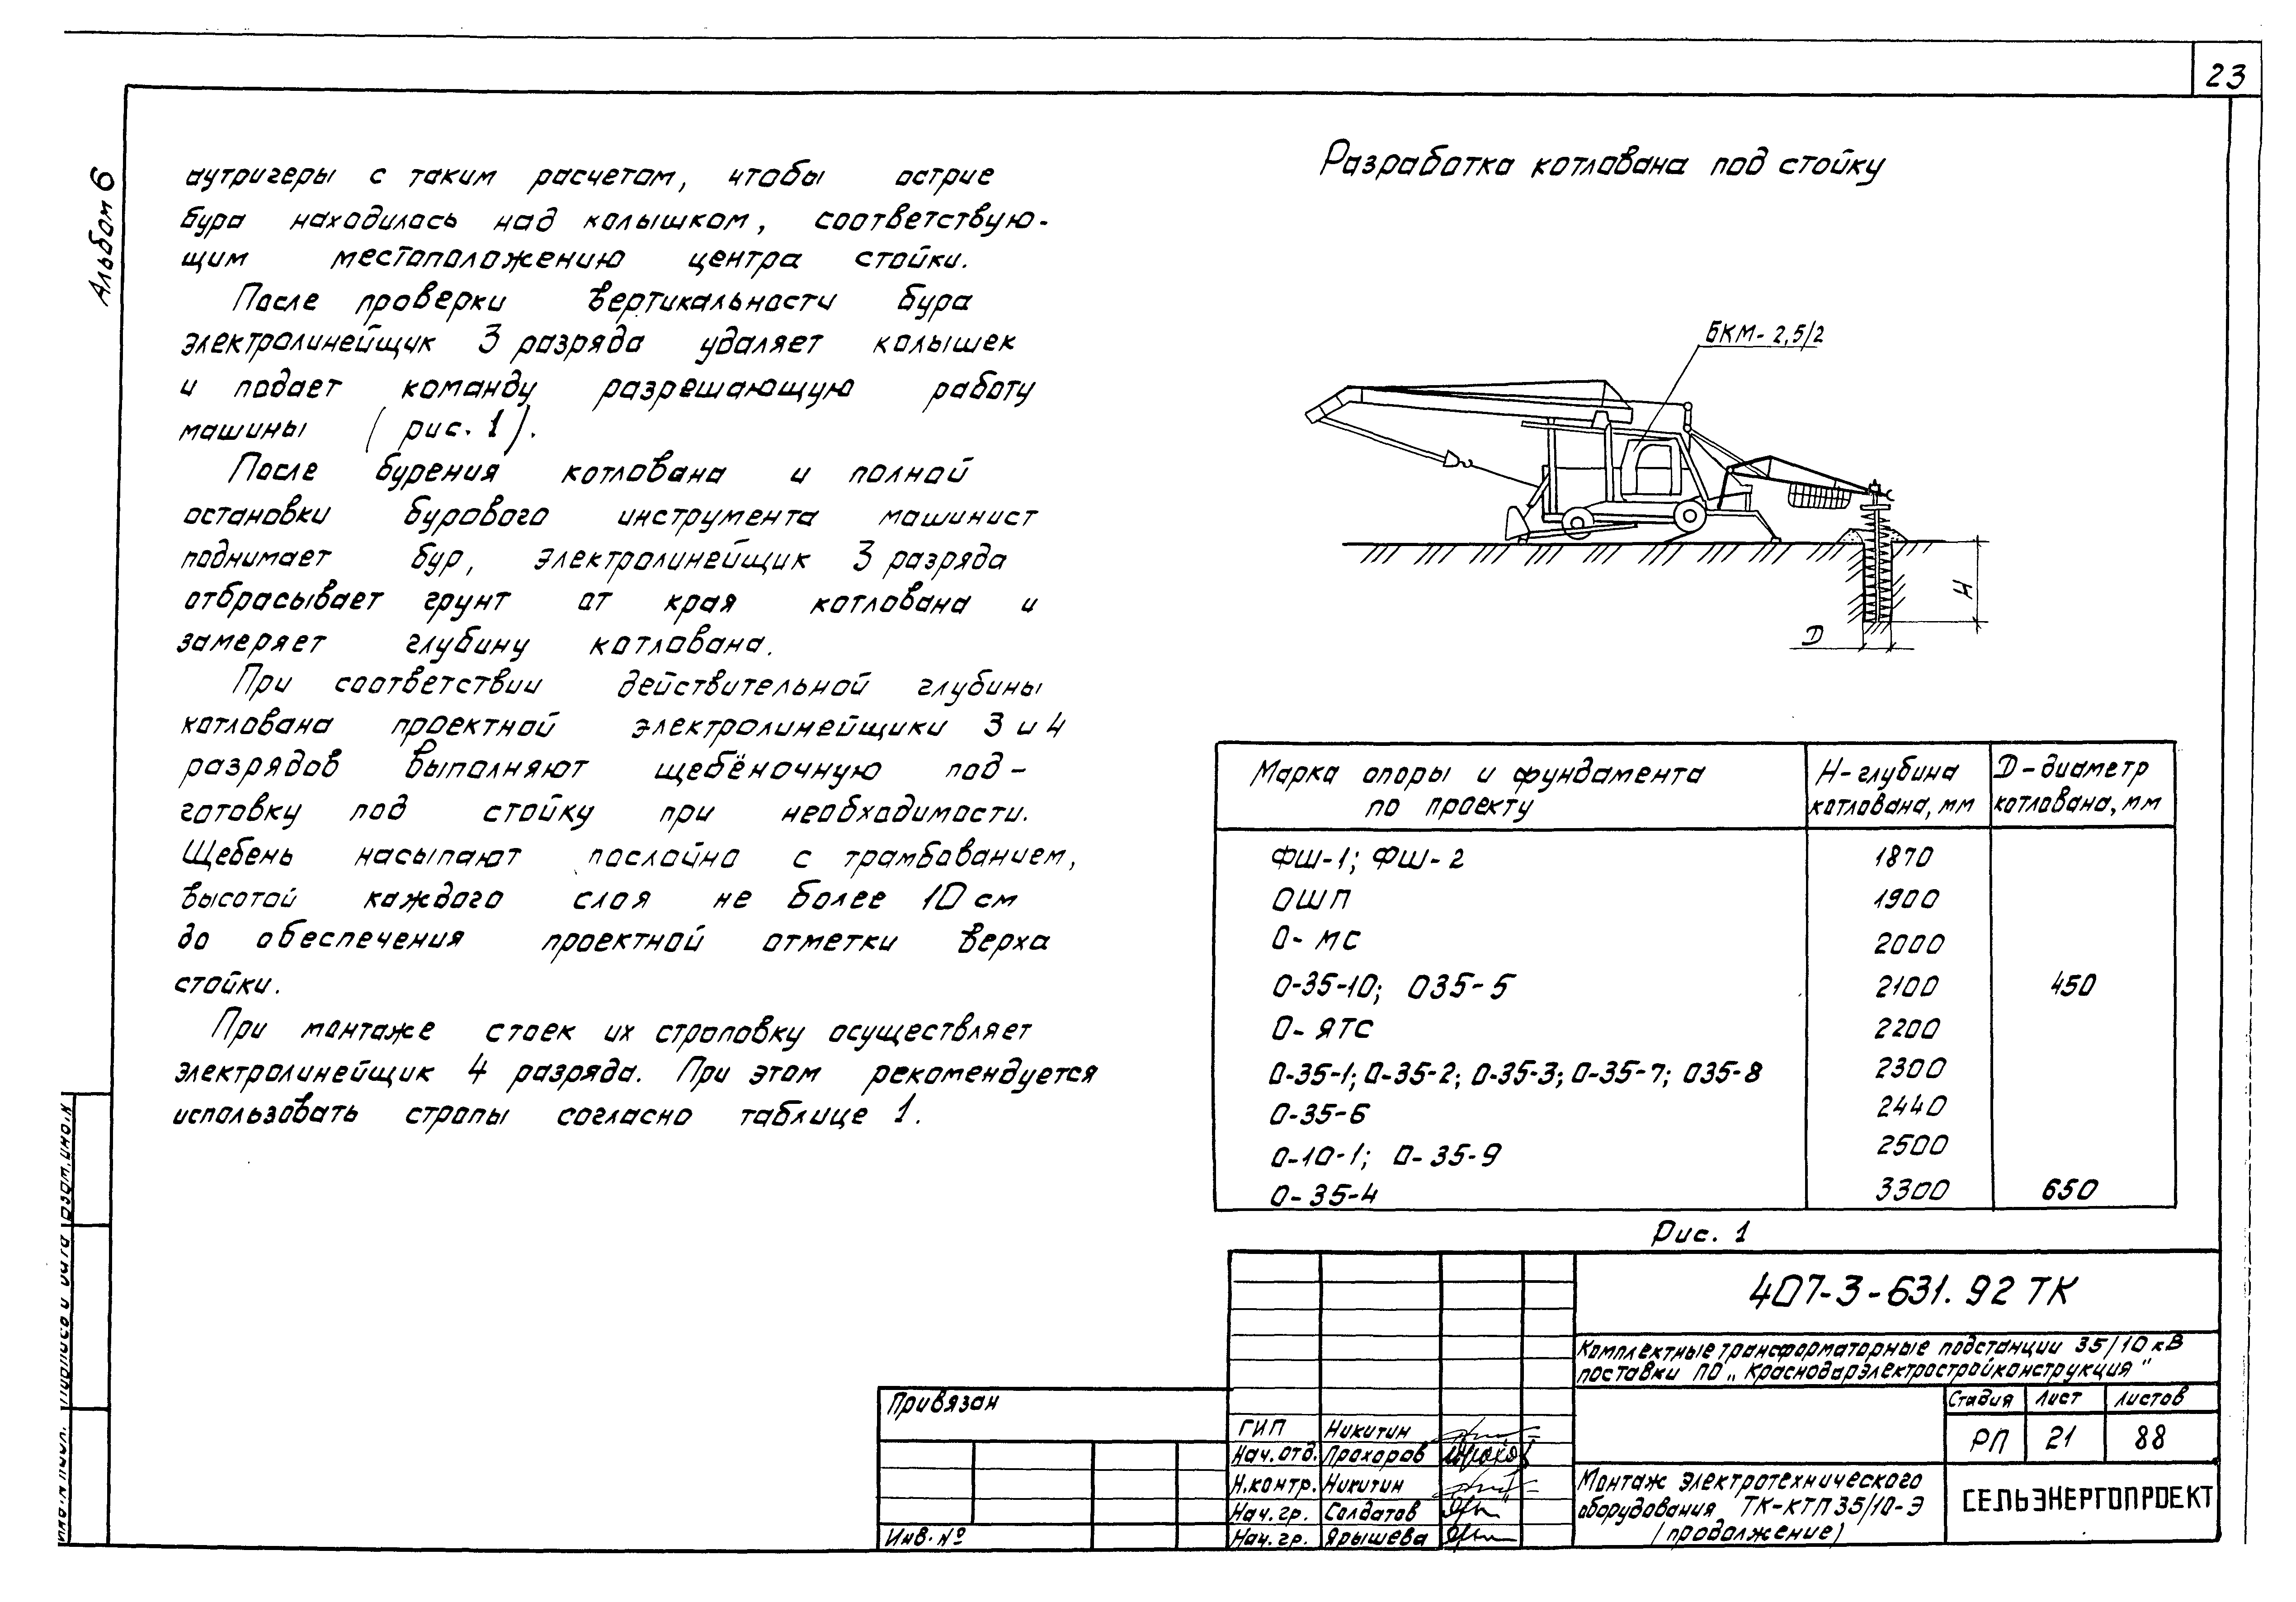 23
Альбом 6
аутригеры с таким расчетом, чтобы острие
бура находилось над колышком, соответствую-
щим местоположению центра стойки.
После проверки вертикальности бура
электролинейщик 3 разряда удаляет колышек
и подает команду разрешающую работу
машины (рис. 1).
После бурения котлована и полной
остановки бурового инструмента машинист
поднимает бур, электролинейщик 3 разряда
отбрасывает грунт от края котлована и
замеряет глубину котлована.
При соответствии действительной глубины
котлована проектной электролинейщики 3 и 4
разрядов выполняют щебёночную под-
готовку под стойку при необходимости.
Щебень насыпают послойно с трамбованием,
высотой каждого слоя не более 10 см
до обеспечения проектной отметки верха
стойки.
При монтаже стоек их строповку осуществляет
электролинейщик 4 разряда. При этом рекомендуется
использовать стропы согласно таблице 1.
Разработка котлована под стойку
БКМ-2,5/2
Н
D
Марка опоры и фундамента по проекту
Н-глубина котлована, мм
D-диаметр котлована, мм
ФШ-1; ФШ-2 1870
ОШП 1900
О-МС 2000
О-35-10; О35-5 2100 450
О-ЯТС 2200
О-35-1; О-35-2; О-35-3; О-35-7; О35-8 2300
О-35-6 2440
О-10-1; О-35-9 2500
О-35-4 3300 650
Рис. 1
407-3-631.92 ТК
Комплектные трансформаторные подстанции 35/10 кВ
поставки ПО „Краснодарэлектростройконструкция"
Стадия Лист Листов
РП 21 88
Привязан
Инв. №
ГИП Никитин
Нач. отд. Прохоров
Н.контр. Никитин
Нач. гр. Солдатов
Нач. гр. Ярышева
Монтаж электротехнического
оборудования ТК-КТП 35/10-Э
(продолжение)
СЕЛЬЭНЕРГОПРОЕКТ
Взам. инв. №
Подпись и дата
Инв. № подл.